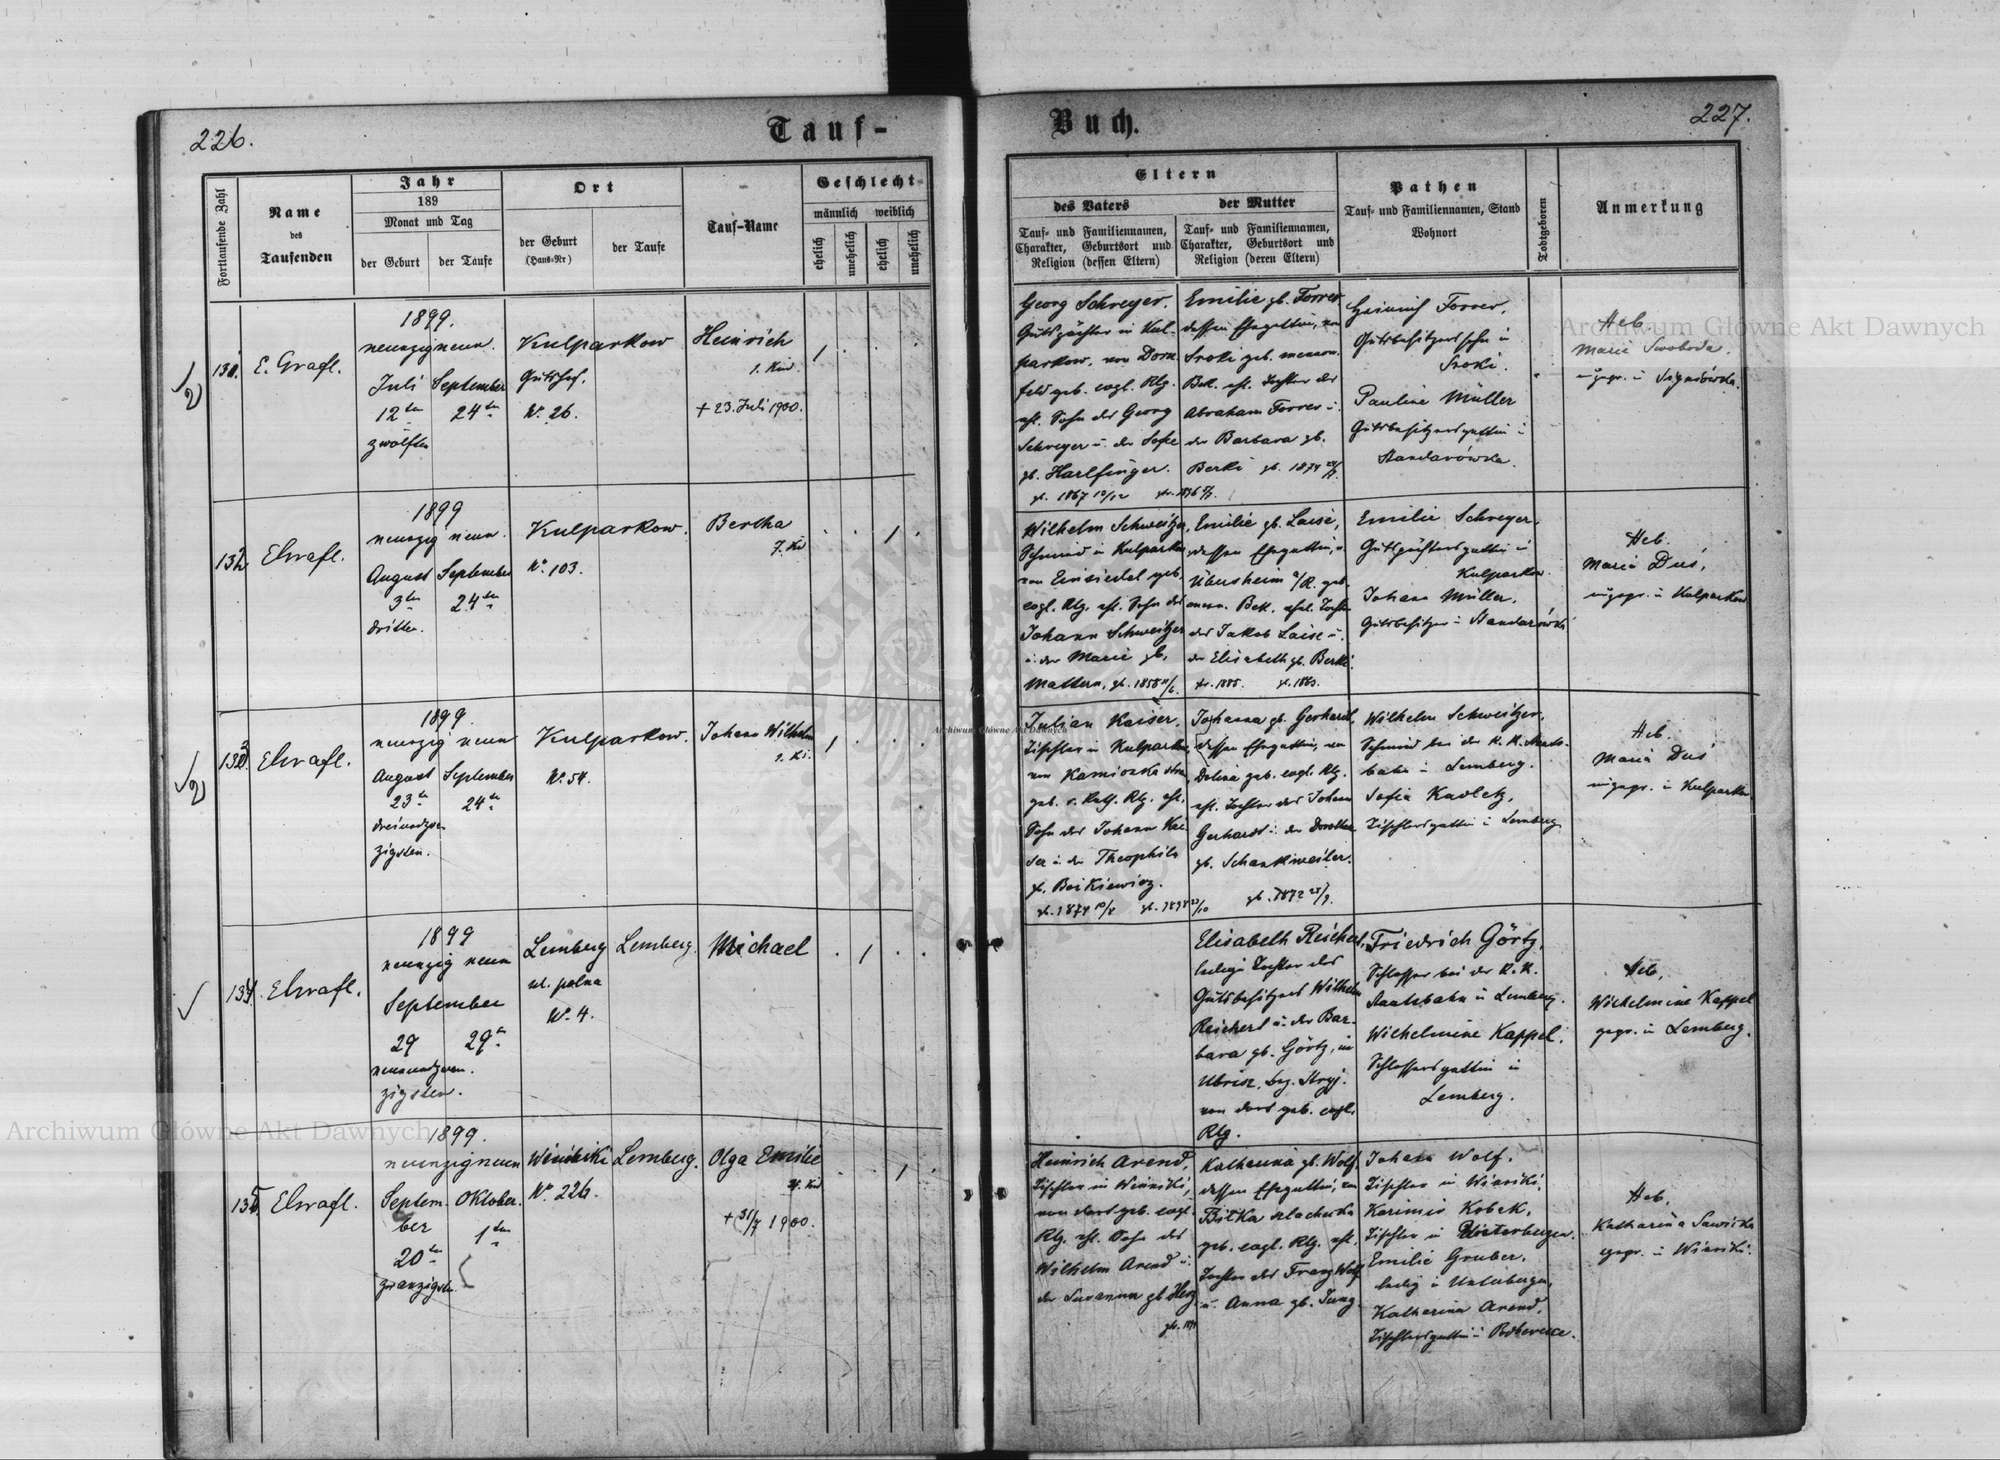 226.
Tauf-
Buch.
227.
Fortlaufende Zahl
Name
des
Taufenden
Jahr
189
Monat und Tag
der Geburt
der Taufe
Ort
der Geburt
(Haus-Nr)
der Taufe
Tauf-Name
Geschlecht
männlich
weiblich
ehelich
unehelich
ehelich
unehelich
Eltern
des Vaters
der Mutter
Tauf- und Familiennamen,
Charakter, Geburtsort und
Religion (dessen Eltern)
Tauf- und Familiennamen,
Charakter, Geburtsort und
Religion (deren Eltern)
Pathen
Tauf- und Familiennamen, Stand
Wohnort
Todtgeboren
Anmerkung
131.
E. Grafl.
1899.
neunzigneun.
Juli September
12ten 24ten
zwölften
Kulparkow
Gutshof.
Nr. 26.
Heinrich
1. Kind
+ 23. Juli 1900.
1
Georg Schreyer.
Gutspächter in Kul-
parkow, von Dorn
feld geb. evgl. Rlg.
ehl. Sohn des Georg
Schreyer u. der Sofie
gb. Harlfinger.
gb. 1867 10/12
Emilie gb. Forrer
dessen Ehegattin, von
Sroki geb. menon.
Bek. ehl. Tochter des
Abraham Forrer u.
der Barbara gb.
Berki gb. 1874
Heinrich Forrer,
Gutsbesitzerssohn in
Sroki.
Pauline Müller
Gutsbesitzersgattin in
Standarówka.
Heb.
Marie Swoboda.
132
1899
neunzig neun.
August September
3ten 24ten
dritten.
Kulparkow.
No. 103.
Bertha
7. Kd
1
Wilhelm Schweitzer,
Schmied in Kulparkow
von Einsiedel geb.
evgl. Rlg. ehl. Sohn des
Johann Schweitzer
u. der Marie gb.
Mattern, gb. 1858
Emilie gb. Laise,
dessen Ehegattin, v.
Übersheim a/R. geb.
menn. Bek. ehel. Tochter
des Jakob Laise u.
der Elisabeth gb. Berki.
tr. 1885.
Emilie Schreyer.
Gutspächtersgattin in
Kulparkow.
Johann Müller.
Gutsbesitzer in Standarówka
Heb.
Maria Duś,
in Kulparkow
133.
1899.
neunzig neun
August September
23ten 24ten
dreiundzwan
zigsten.
Kulparkow.
No. 54.
Johann Wilhelm
1
Julian Kaiser,
Tischler in Kulparkow,
von Kamionka
geb. r. kath. Rlg. ehl.
Sohn des Johann Kai
ser u. der Theophila
gb. Beikiewicz.
Johanna gb. Gerhardt,
dessen Ehegattin, von
Dolina geb. evgl. Rlg.
ehl. Tochter des Johann
Gerhardt u. der Dorothea
gb. Schankweiler.
Wilhelm Schweitzer,
Schmied bei der k. k. Staats-
bahn in Lemberg.
Sofia Kavletz,
Tischlersgattin in Lemberg
Heb.
Maria Duś
in Kulparkow
134.
1899
neunzig neun
September
29 29ten
neunundzwan
zigsten.
Lemberg
ul. polna
No. 4.
Lemberg.
Michael
1
Elisabeth Reichert,
ledige Tochter des
Gutsbesitzers Wilhelm
Reichert u. der Bar-
bara gb. Görtz, in
Ubrisz, Bez. Stryj.
von dort geb. evgl.
Rlg.
Friedrich Görtz,
Schlosser bei der k. k.
Staatsbahn in Lemberg.
Wilhelmine Kappel.
Schlossersgattin in
Lemberg.
Heb.
Wilhelmine Kappel
gepr. in Lemberg.
135.
1899.
neunzigneun
Septem Oktober.
ber
20ten 1ten
zwanzigsten
Winniki
No. 226.
Lemberg.
Olga Emilie
+ 31/7 1900.
1
Heinrich Arend,
Tischler in Winniki,
von dort geb. evgl.
Rlg. ehl. Sohn des
Wilhelm Arend u.
der Susanna gb. Herz
Katharina gb. Wolf.
dessen Ehegattin, von
Bilka szlachecka
geb. evgl. Rlg. ehl.
Tochter des Franz Wolf
u. Anna gb. Jung.
Johann Wolf.
Tischler in Winniki.
Kasimir Kobak,
Tischler in Unterbergen.
Emilie Gruber.
ledig in Unterbergen,
Katharina Arend,
Tischlersgattin in
Heb.
Katharina Sawicka
gepr. in Winniki.
Archiwum Główne Akt Dawnych
Archiwum Główne Akt Dawnych
Archiwum Główne Akt Dawnych